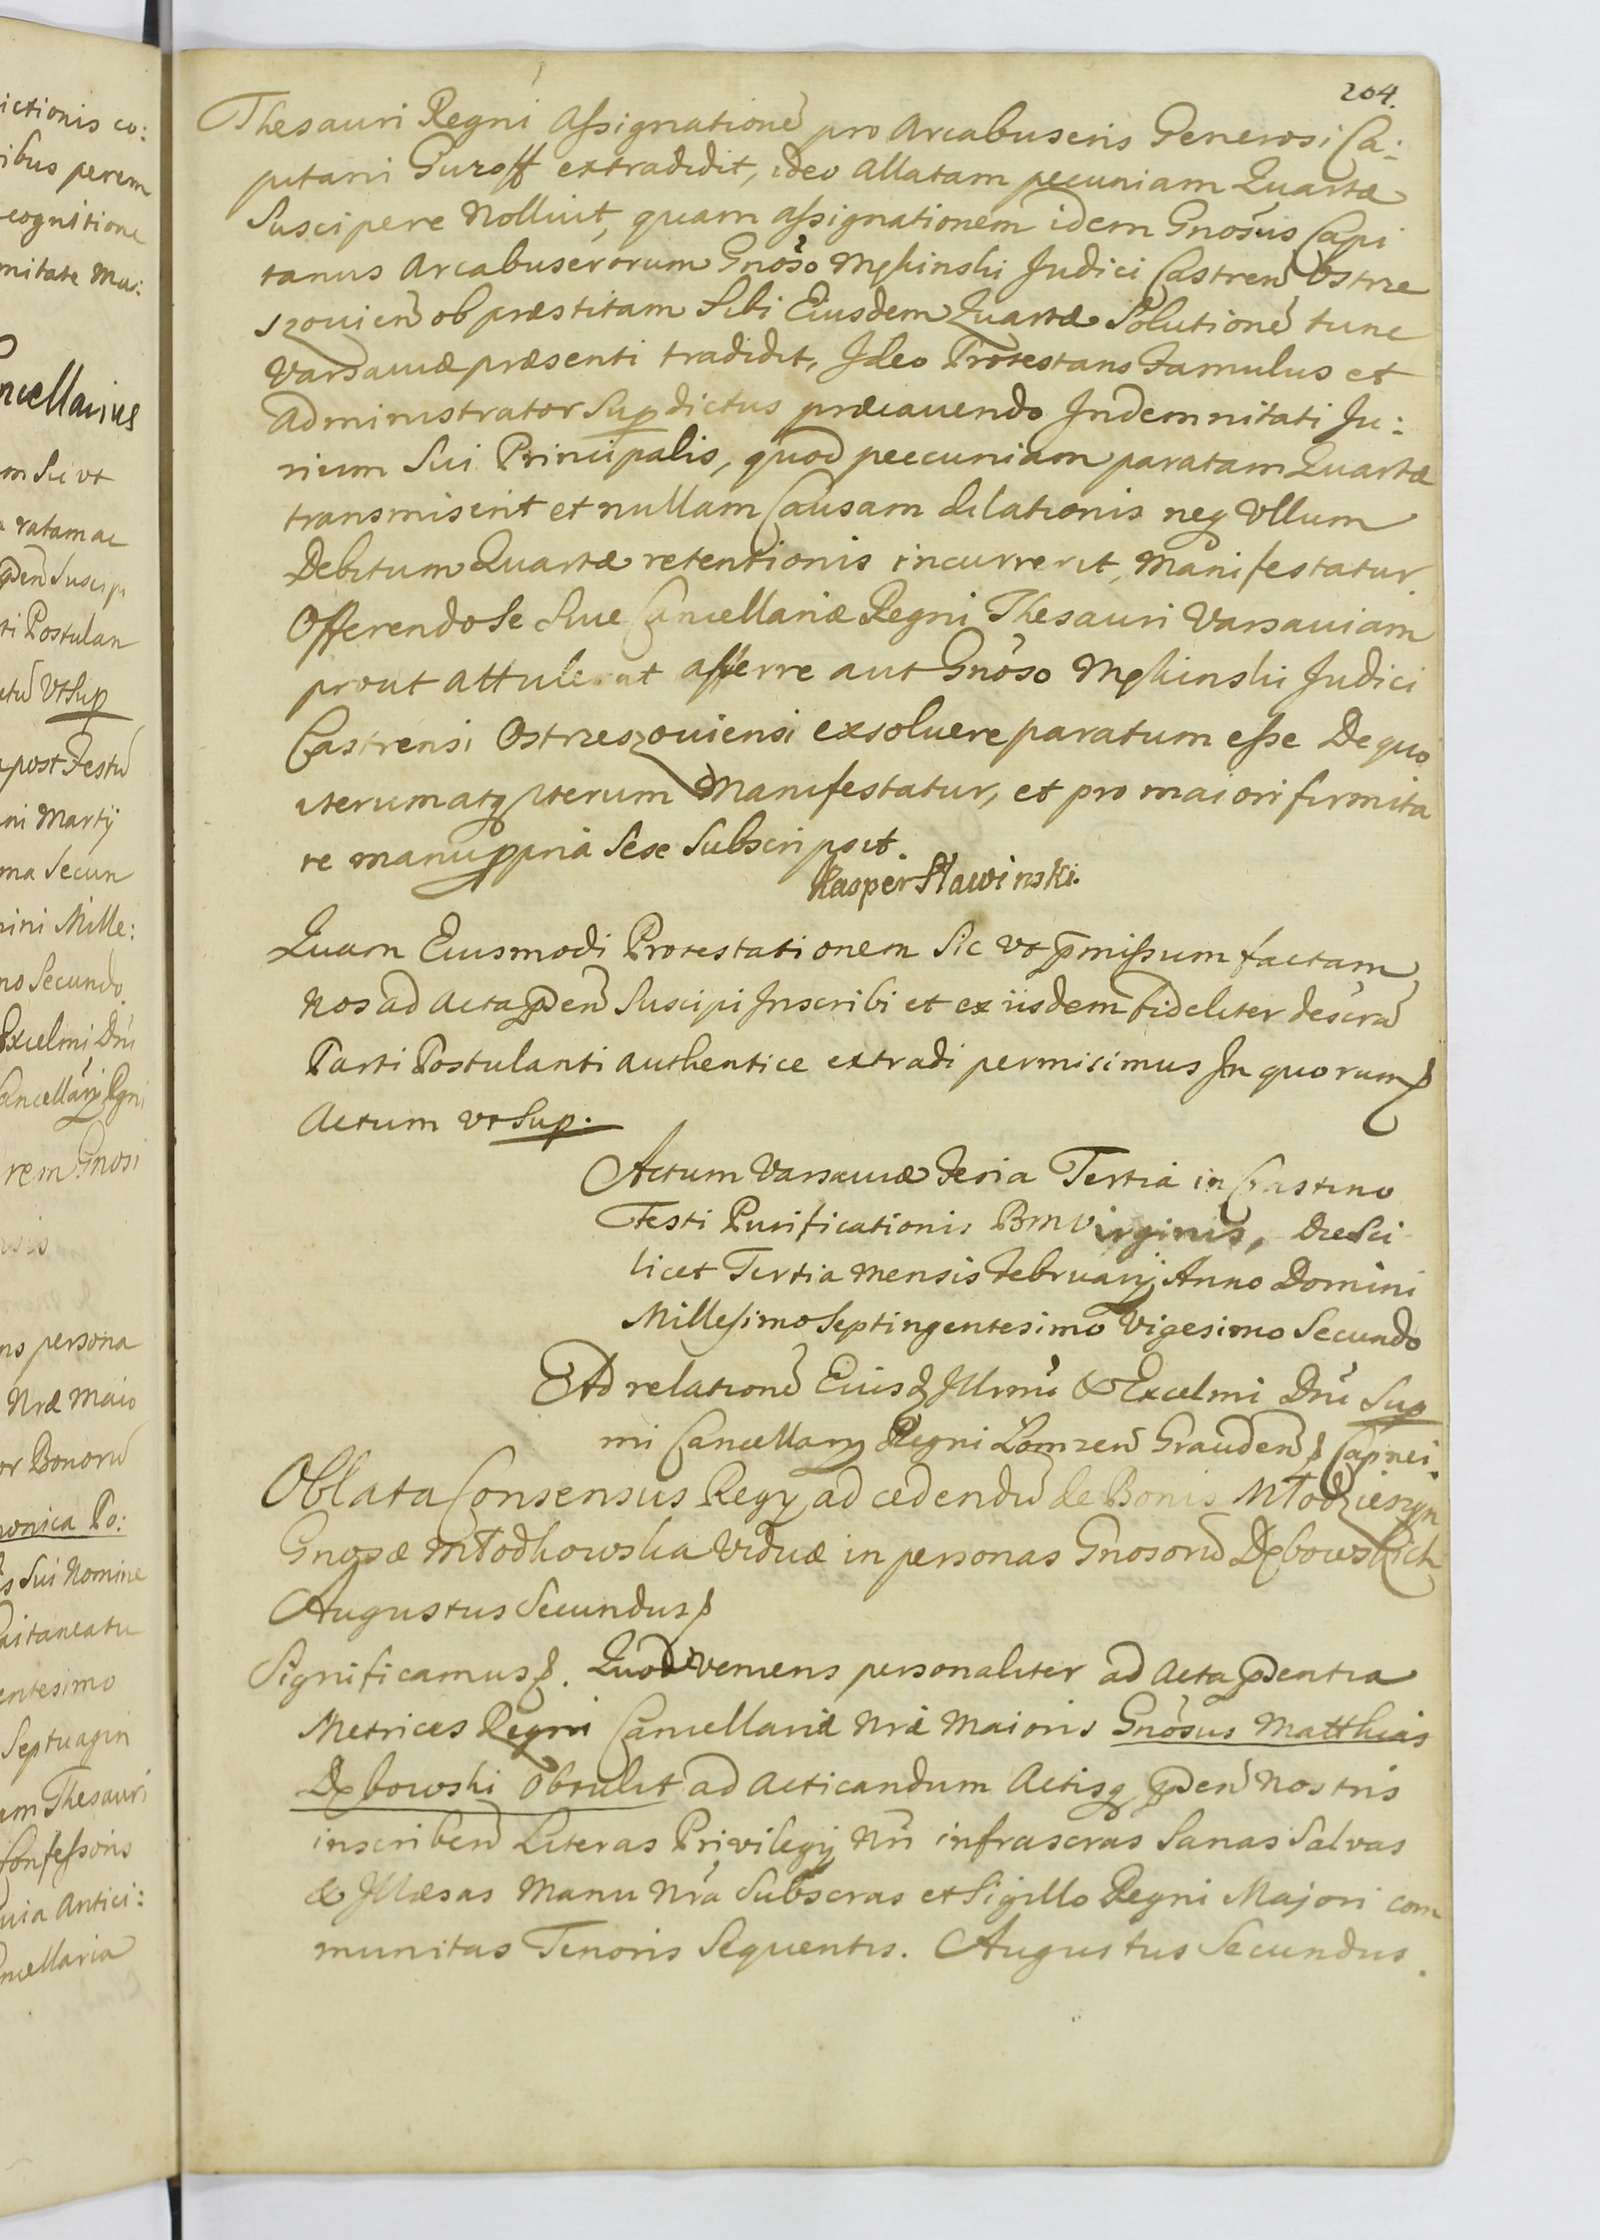 204.
Thesauri Regni Assignatione pro Arcabuseris Generosi Ca:
pitani Guroff extradidit, ideo Allatam pecuniam Quartæ
Suscipere Nolluit, quam assignationem idem Gnosus Capi
tanus Arcabuserorum Gnoso Mękinski Judici Castren Ostrze
szouien ob præstitam Sibi Eiusdem Quartæ Solutione tunc
Varsauiæ præsenti tradidit, Ideo Protestans Famulus et
Administrator Supdictus præcauendo Indemnitati Ju:
rium Sui Principalis, quod peecuniam paratam Quartæ
transmiserit et nullam Causam dilationis neq Vllum
Debitum Quartæ retentionis incurrerit, Manifestatur
Offerendo Se Siue Cancellariæ Regni Thesauri Varsauiam
prout attulerat afferre aut Gnoso Mękinski Judici
Castrensi Ostrzeszouiensi exsoluere paratum esse De quo
iterum atq iterum Manifestatur, et pro maiori firmita
te manu ppria Sese Subscripsit.
Kasper Sławinski.
Quam Eiusmodi Protestationem Sic vt pmissum factam
Nos ad Acta pden Suscipi Inscribi et ex iisdem fideliter descra
Parti Postulanti authentice extradi permisimus In quorum
Actum vt Sup.
Actum Varsauiæ Feria Tertia in Crastino
Festi Purificationis BM Virginis, die Sci
licet Tertia Mensis Februarij Anno Domini
Millesimo Septingentesimo Vigesimo Secundo
Ad relatione Eiusd Illrmi & Excelmi Dni Sup
mi Cancellary Regni Łomzen Grauden Capnei.
Oblata Consensus Regy ad cedendu de Bonis Młodzieszyn
Gnosæ Młodkowska Viduæ in personas Gnosoru Dębowskich
Augustus Secundus
Significamus. Quod veniens personaliter ad Acta pdentia
Metrices Regni Cancellariæ Nræ Maioris Gnosus Matthias
Dębowski Obtulit ad Acticandum Actisq pden Nostris
inscriben Literas Privilegij Nri infrascras Sanas Salvas
& Illæsas Manu Nra Subscras et Sigillo Regni Majori com
munitas Tenoris Sequentis. Augustus Secundus.